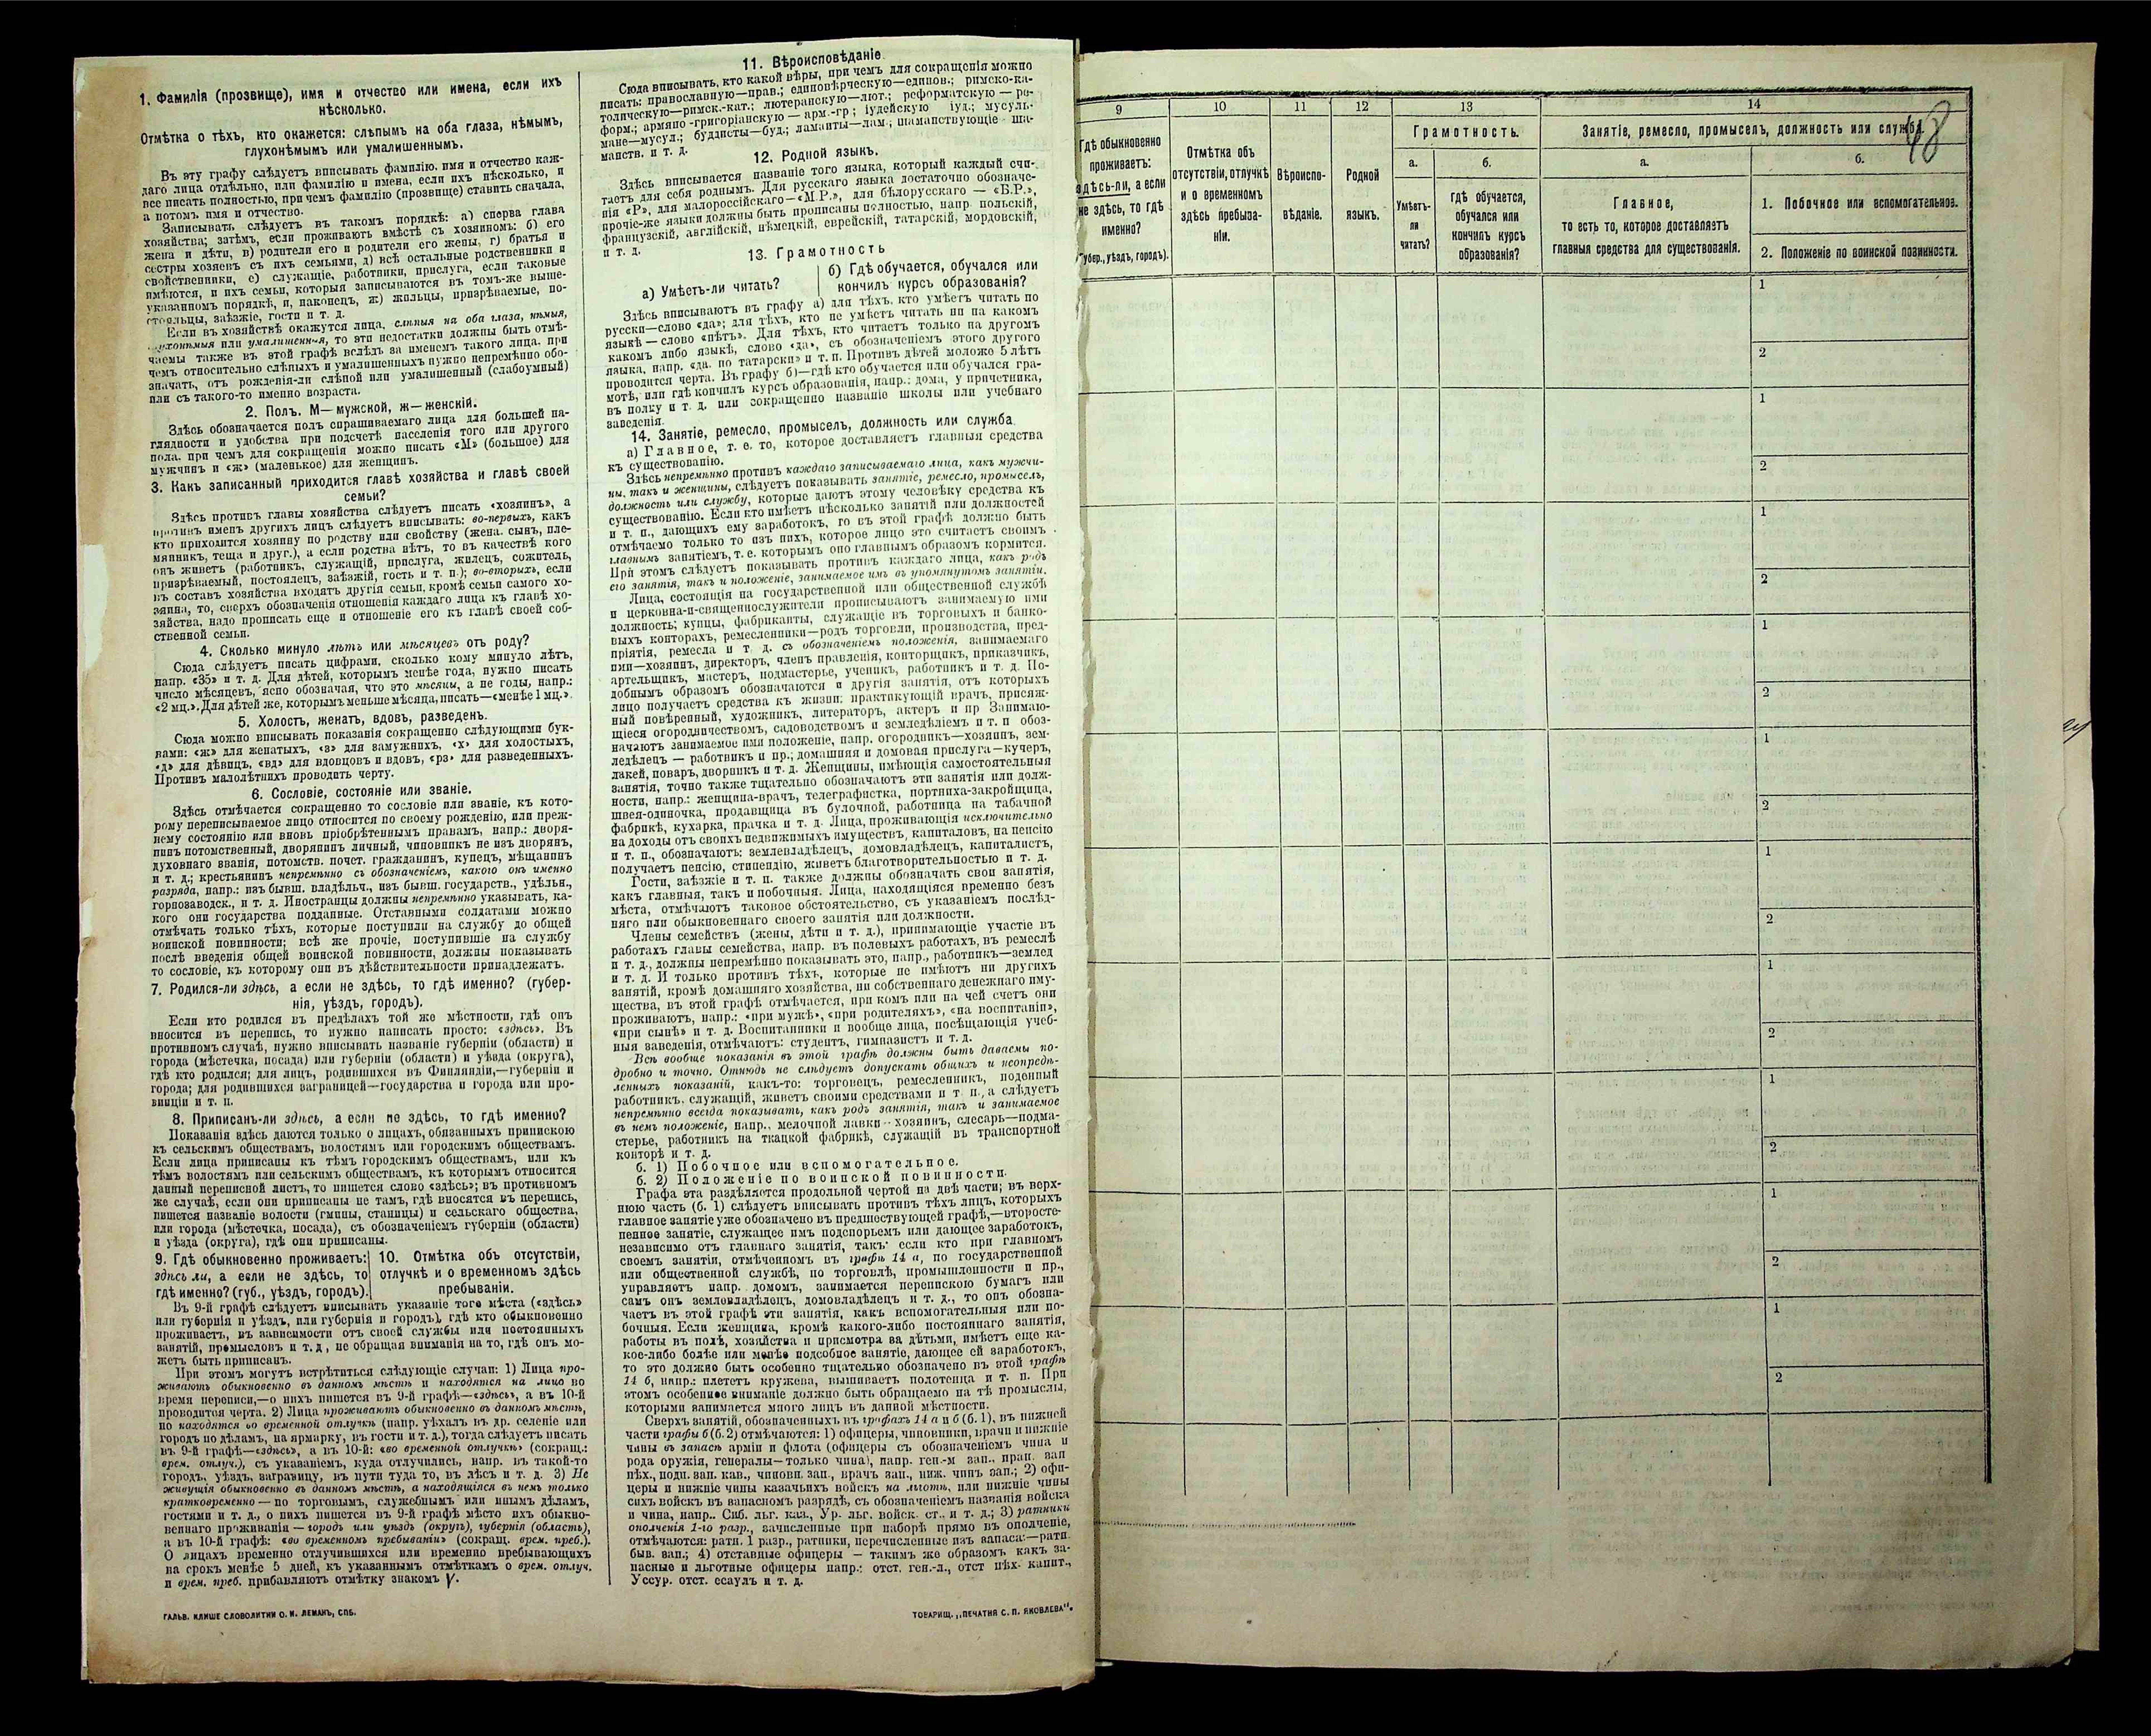 1. Фамилія (прозвище), имя и отчество или имена, если ихъ
нѣсколько.
Отмѣтка о тѣхъ, кто окажется: слѣпымъ на оба глаза, нѣмымъ,
глухонѣмымъ или умалишеннымъ.
Въ эту графу слѣдуетъ вписывать фамилію, имя и отчество каж-
даго лица отдѣльно, или фамилію и имена, если ихъ нѣсколько, и
все писать полностью, при чемъ фамилію (прозвище) ставить сначала,
а потомъ имя и отчество.
Записывать слѣдуетъ въ такомъ порядкѣ: а) сперва глава
хозяйства; затѣмъ, если проживаютъ вмѣстѣ съ хозяиномъ: б) его
жена и дѣти, в) родители его и родители его жены, г) братья и
сестры хозяевъ съ ихъ семьями, д) всѣ остальные родственники и
свойственники, е) служащіе, работники, прислуга, если таковые
имѣются, и ихъ семьи, которыя записываются въ томъ-же выше-
указанномъ порядкѣ, и, наконецъ, ж) жильцы, призрѣваемые, по-
стояльцы, заѣзжіе, гости и т. д.
Если въ хозяйствѣ окажутся лица, слѣпыя на оба глаза, нѣмыя,
глухонѣмыя или умалишенныя, то эти недостатки должны быть отмѣ-
чаемы также въ этой графѣ вслѣдъ за именемъ такого лица, при
чемъ относительно слѣпыхъ и умалишенныхъ нужно непремѣнно обо-
значать, отъ рожденія-ли слѣпой или умалишенный (слабоумный)
или съ такого-то именно возраста.
2. Полъ. М—мужской, ж—женскій.
Здѣсь обозначается полъ спрашиваемаго лица для большей на-
глядности и удобства при подсчетѣ населенія того или другого
пола, при чемъ для сокращенія можно писать «М» (большое) для
мужчинъ и «ж» (маленькое) для женщинъ.
3. Какъ записанный приходится главѣ хозяйства и главѣ своей
семьи?
Здѣсь противъ главы хозяйства слѣдуетъ писать «хозяинъ», а
противъ именъ другихъ лицъ слѣдуетъ вписывать: во-первыхъ, какъ
кто приходится хозяину по родству или свойству (жена, сынъ, пле-
мянникъ, теща и друг.), а если родства нѣтъ, то въ качествѣ кого
онъ живетъ (работникъ, служащій, прислуга, жилецъ, сожитель,
призрѣваемый, постоялецъ, заѣзжій, гость и т. п.); во-вторыхъ, если
въ составъ хозяйства входятъ другія семьи, кромѣ семьи самого хо-
зяина, то, сверхъ обозначенія отношенія каждаго лица къ главѣ хо-
зяйства, надо прописать еще и отношеніе его къ главѣ своей соб-
ственной семьи.
4. Сколько минуло лѣтъ или мѣсяцевъ отъ роду?
Сюда слѣдуетъ писать цифрами, сколько кому минуло лѣтъ,
напр. «35» и т. д. Для дѣтей, которымъ менѣе года, нужно писать
число мѣсяцевъ, ясно обозначая, что это мѣсяцы, а не годы, напр.:
«2 мц.». Для дѣтей же, которымъ меньше мѣсяца, писать—«менѣе 1 мц.».
5. Холостъ, женатъ, вдовъ, разведенъ.
Сюда можно вписывать показанія сокращенно слѣдующими бук-
вами: «ж» для женатыхъ, «з» для замужнихъ, «х» для холостыхъ,
«д» для дѣвицъ, «вд» для вдовцовъ и вдовъ, «рз» для разведенныхъ.
Противъ малолѣтнихъ проводить черту.
6. Сословіе, состояніе или званіе.
Здѣсь отмѣчается сокращенно то сословіе или званіе, къ кото-
рому переписываемое лицо относится по своему рожденію, или преж-
нему состоянію или вновь пріобрѣтеннымъ правамъ, напр.: дворя-
нинъ потомственный, дворянинъ личный, чиновникъ не изъ дворянъ,
духовнаго званія, потомств. почет. гражданинъ, купецъ, мѣщанинъ
и т. д.; крестьянинъ непремѣнно съ обозначеніемъ, какого онъ именно
разряда, напр.: изъ бывш. владѣльч., изъ бывш. государств., удѣльн.,
горнозаводск., и т. д. Иностранцы должны непремѣнно указывать, ка-
кого они государства подданные. Отставными солдатами можно
отмѣчать только тѣхъ, которые поступили на службу до общей
воинской повинности; всѣ же прочіе, поступившіе на службу
послѣ введенія общей воинской повинности, должны показывать
то сословіе, къ которому они въ дѣйствительности принадлежатъ.
7. Родился-ли здѣсь, а если не здѣсь, то гдѣ именно? (губер-
нія, уѣздъ, городъ).
Если кто родился въ предѣлахъ той же мѣстности, гдѣ онъ
вносится въ перепись, то нужно написать просто: «здѣсь». Въ
противномъ случаѣ, нужно вписывать названіе губерніи (области) и
города (мѣстечка, посада) или губерніи (области) и уѣзда (округа),
гдѣ кто родился; для лицъ, родившихся въ Финляндіи,—губерніи и
города; для родившихся заграницей—государства и города или про-
винціи и т. п.
8. Приписанъ-ли здѣсь, а если не здѣсь, то гдѣ именно?
Показанія здѣсь даются только о лицахъ, обязанныхъ припискою
къ сельскимъ обществамъ, волостямъ или городскимъ обществамъ.
Если лица приписаны къ тѣмъ городскимъ обществамъ, или къ
тѣмъ волостямъ или сельскимъ обществамъ, къ которымъ относится
данный переписной листъ, то пишется слово «здѣсь»; въ противномъ
же случаѣ, если они приписаны не тамъ, гдѣ вносятся въ перепись,
пишется названіе волости (гмины, станицы) и сельскаго общества,
или города (мѣстечка, посада), съ обозначеніемъ губерніи (области)
и уѣзда (округа), гдѣ они приписаны.
9. Гдѣ обыкновенно проживаетъ:
здѣсь ли, а если не здѣсь, то
гдѣ именно? (губ., уѣздъ, городъ).
10. Отмѣтка объ отсутствіи,
отлучкѣ и о временномъ здѣсь
пребываніи.
Въ 9-й графѣ слѣдуетъ вписывать указаніе того мѣста («здѣсь»
или губернія и уѣздъ, или губернія и городъ), гдѣ кто обыкновенно
проживаетъ, въ зависимости отъ своей службы или постоянныхъ
занятій, промысловъ и т. д., не обращая вниманія на то, гдѣ онъ мо-
жетъ быть приписанъ.
При этомъ могутъ встрѣтиться слѣдующіе случаи: 1) Лица про-
живаютъ обыкновенно въ данномъ мѣстѣ и находятся на лицо во
время переписи,—о нихъ пишется въ 9-й графѣ—«здѣсь», а въ 10-й
проводится черта. 2) Лица проживаютъ обыкновенно въ данномъ мѣстѣ,
но находятся во временной отлучкѣ (напр. уѣхалъ въ др. селеніе или
городъ по дѣламъ, на ярмарку, въ гости и т. д.), тогда слѣдуетъ писать
въ 9-й графѣ—«здѣсь», а въ 10-й: «во временной отлучкѣ» (сокращ.:
врем. отлуч.), съ указаніемъ, куда отлучились, напр. въ такой-то
городъ, уѣздъ, заграницу, въ пути туда то, въ лѣсъ и т. д. 3) Не
живущія обыкновенно въ данномъ мѣстѣ, а находящіяся въ немъ только
кратковременно — по торговымъ, служебнымъ или инымъ дѣламъ,
гостями и т. д., о нихъ пишется въ 9-й графѣ мѣсто ихъ обыкно-
веннаго проживанія — городъ или уѣздъ (округъ), губернія (область),
а въ 10-й графѣ: «во временномъ пребываніи» (сокращ. врем. преб.).
О лицахъ временно отлучившихся или временно пребывающихъ
на срокъ менѣе 5 дней, къ указаннымъ отмѣткамъ о врем. отлуч.
и врем. преб. прибавляютъ отмѣтку знакомъ V.
ГАЛЬВ. КЛИШЕ СЛОВОЛИТНИ О. И. ЛЕМАНЪ, СПБ.
11. Вѣроисповѣданіе
Сюда вписывать, кто какой вѣры, при чемъ для сокращенія можно
писать: православную—прав.; единовѣрческую—единов.; римско-ка-
толическую—римск.-кат.; лютеранскую—лют.; реформатскую — ре-
форм.; армяно-григоріанскую — арм.-гр.; іудейскую — іуд.; мусуль-
мане—мусул.; буддисты—буд.; ламаиты—лам.; шаманствующіе — ша-
манств. и т. д.
12. Родной языкъ.
Здѣсь вписывается названіе того языка, который каждый счи-
таетъ для себя роднымъ. Для русскаго языка достаточно обозначе-
нія «Р», для малороссійскаго—«М.Р.», для бѣлорусскаго — «Б.Р.»,
прочіе-же языки должны быть прописаны полностью, напр. польскій,
французскій, англійскій, нѣмецкій, еврейскій, татарскій, мордовскій,
и т. д.
13. Грамотность
а) Умѣетъ-ли читать?
б) Гдѣ обучается, обучался или
кончилъ курсъ образованія?
Здѣсь вписываютъ въ графу а) для тѣхъ, кто умѣетъ читать по
русски—слово «да»; для тѣхъ, кто не умѣетъ читать ни на какомъ
языкѣ — слово «нѣтъ». Для тѣхъ, кто читаетъ только на другомъ
какомъ либо языкѣ, слово «да», съ обозначеніемъ этого другого
языка, напр. «да, по татарски» и т. п. Противъ дѣтей моложе 5 лѣтъ
проводится черта. Въ графу б)—гдѣ кто обучается или обучался гра-
мотѣ, или гдѣ кончилъ курсъ образованія, напр.: дома, у причетника,
въ полку и т. д. или сокращенно названіе школы или учебнаго
заведенія.
14. Занятіе, ремесло, промыселъ, должность или служба.
а) Главное, т. е. то, которое доставляетъ главныя средства
къ существованію.
Здѣсь непремѣнно противъ каждаго записываемаго лица, какъ мужчи-
ны, такъ и женщины, слѣдуетъ показывать занятіе, ремесло, промыселъ,
должность или службу, которые даютъ этому человѣку средства къ
существованію. Если кто имѣетъ нѣсколько занятій или должностей
и т. п., дающихъ ему заработокъ, то въ этой графѣ должно быть
отмѣчаемо только то изъ нихъ, которое лицо это считаетъ своимъ
главнымъ занятіемъ, т. е. которымъ оно главнымъ образомъ кормится.
При этомъ слѣдуетъ показывать противъ каждаго лица, какъ родъ
его занятія, такъ и положеніе, занимаемое имъ въ упомянутомъ занятіи.
Лица, состоящія на государственной или общественной службѣ
и церковно-и-священнослужители прописываютъ занимаемую ими
должность; купцы, фабриканты, служащіе въ торговыхъ и банко-
выхъ конторахъ, ремесленники—родъ торговли, производства, пред-
пріятія, ремесла и т. д. съ обозначеніемъ положенія, занимаемаго
ими—хозяинъ, директоръ, членъ правленія, конторщикъ, приказчикъ,
артельщикъ, мастеръ, подмастерье, ученикъ, работникъ и т. д. По-
добнымъ образомъ обозначаются и другія занятія, отъ которыхъ
лицо получаетъ средства къ жизни: практикующій врачъ, присяж-
ный повѣренный, художникъ, литераторъ, актеръ и пр. Занимаю-
щіеся огородничествомъ, садоводствомъ и земледѣліемъ и т. п. обоз-
начаютъ занимаемое ими положеніе, напр. огородникъ—хозяинъ, зем-
ледѣлецъ — работникъ и пр.; домашняя и домовая прислуга—кучеръ,
лакей, поваръ, дворникъ и т. д. Женщины, имѣющія самостоятельныя
занятія, точно также тщательно обозначаютъ эти занятія или долж-
ности, напр.: женщина-врачъ, телеграфистка, портниха-закройщица,
швея-одиночка, продавщица въ булочной, работница на табачной
фабрикѣ, кухарка, прачка и т. д. Лица, проживающія исключительно
на доходы отъ своихъ недвижимыхъ имуществъ, капиталовъ, на пенсію
и т. п., обозначаютъ: землевладѣлецъ, домовладѣлецъ, капиталистъ,
получаетъ пенсію, стипендію, живетъ благотворительностью и т. д.
Гости, заѣзжіе и т. п. также должны обозначать свои занятія,
какъ главныя, такъ и побочныя. Лица, находящіяся временно безъ
мѣста, отмѣчаютъ таковое обстоятельство, съ указаніемъ послѣд-
няго или обыкновеннаго своего занятія или должности.
Члены семействъ (жены, дѣти и т. д.), принимающіе участіе въ
работахъ главы семейства, напр. въ полевыхъ работахъ, въ ремеслѣ
и т. д., должны непремѣнно показывать это, напр., работникъ—землед
и т. д. И только противъ тѣхъ, которые не имѣютъ ни другихъ
занятій, кромѣ домашняго хозяйства, ни собственнаго денежнаго иму-
щества, въ этой графѣ отмѣчается, при комъ или на чей счетъ они
проживаютъ, напр.: «при мужѣ», «при родителяхъ», «на воспитаніи»,
«при сынѣ» и т. д. Воспитанники и вообще лица, посѣщающія учеб-
ныя заведенія, отмѣчаютъ: студентъ, гимназистъ и т. д.
Всѣ вообще показанія въ этой графѣ должны быть даваемы по-
дробно и точно. Отнюдь не слѣдуетъ допускать общихъ и неопредѣ-
ленныхъ показаній, какъ-то: торговецъ, ремесленникъ, поденный
работникъ, служащій, живетъ своими средствами и т. п., а слѣдуетъ
непремѣнно всегда показывать, какъ родъ занятія, такъ и занимаемое
въ немъ положеніе, напр., мелочной лавки — хозяинъ, слесарь—подма-
стерье, работникъ на ткацкой фабрикѣ, служащій въ транспортной
конторѣ и т. д.
б. 1) Побочное или вспомогательное.
б. 2) Положеніе по воинской повинности.
Графа эта раздѣляется продольной чертой на двѣ части; въ верх-
нюю часть (б. 1) слѣдуетъ вписывать противъ тѣхъ лицъ, которыхъ
главное занятіе уже обозначено въ предшествующей графѣ,—второсте-
пенное занятіе, служащее имъ подспорьемъ или дающее заработокъ,
независимо отъ главнаго занятія, такъ: если кто при главномъ
своемъ занятіи, отмѣченномъ въ графѣ 14 а, по государственной
или общественной службѣ, по торговлѣ, промышленности и пр.,
управляетъ напр. домомъ, занимается перепискою бумагъ или
самъ онъ землевладѣлецъ, домовладѣлецъ и т. д., то онъ обозна-
чаетъ въ этой графѣ эти занятія, какъ вспомогательныя или по-
бочныя. Если женщина, кромѣ какого-либо постояннаго занятія,
работы въ полѣ, хозяйства и присмотра за дѣтьми, имѣетъ еще ка-
кое-либо болѣе или менѣе подсобное занятіе, дающее ей заработокъ,
то это должно быть особенно тщательно обозначено въ этой графѣ
14 б, напр.: плететъ кружева, вышиваетъ полотенца и т. п. При
этомъ особенное вниманіе должно быть обращаемо на тѣ промыслы,
которыми занимается много лицъ въ данной мѣстности.
Сверхъ занятій, обозначенныхъ въ графахъ 14 а и б (б. 1), въ нижней
части графы б (б. 2) отмѣчаются: 1) офицеры, чиновники, врачи и нижніе
чины въ запасѣ арміи и флота (офицеры съ обозначеніемъ чина и
рода оружія, генералы—только чина), напр. ген.-м зап., прап. зап
пѣх., подп. зап. кав., чиновн. зап., врачъ зап., ниж. чинъ зап.; 2) офи-
церы и нижніе чины казачьихъ войскъ на льготѣ, или нижніе чины
сихъ войскъ въ запасномъ разрядѣ, съ обозначеніемъ названія войска
и чина, напр.. Сиб. льг. каз., Ур. льг. войск. ст., и т. д.; 3) ратники
ополченія 1-го разр., зачисленные при наборѣ прямо въ ополченіе,
отмѣчаются: ратн. 1 разр., ратники, перечисленные изъ запаса:—ратн.
быв. зап.; 4) отставные офицеры — такимъ же образомъ какъ за-
пасные и льготные офицеры напр.: отст. ген.-л., отст пѣх. капит.,
Уссур. отст. есаулъ и т. д.
ТОВАРИЩ. „ПЕЧАТНЯ С. П. ЯКОВЛЕВА".
9
10
11
12
13
14
Гдѣ обыкновенно
проживаетъ:
здѣсь-ли, а если
не здѣсь, то гдѣ
именно?
(губер., уѣздъ, городъ).
Отмѣтка объ
отсутствіи, отлучкѣ
и о временномъ
здѣсь пребыва-
ніи.
Вѣроиспо-
вѣданіе.
Родной
языкъ.
Грамотность.
а.
Умѣетъ-
ли
читать?
б.
гдѣ обучается,
обучался или
кончилъ курсъ
образованія?
Занятіе, ремесло, промыселъ, должность или служба.
48
а.
Главное,
то есть то, которое доставляетъ
главныя средства для существованія.
б.
1. Побочное или вспомогательное.
2. Положеніе по воинской повинности.
1
2
1
2
1
2
1
2
1
2
1
2
1
2
1
2
1
2
1
2